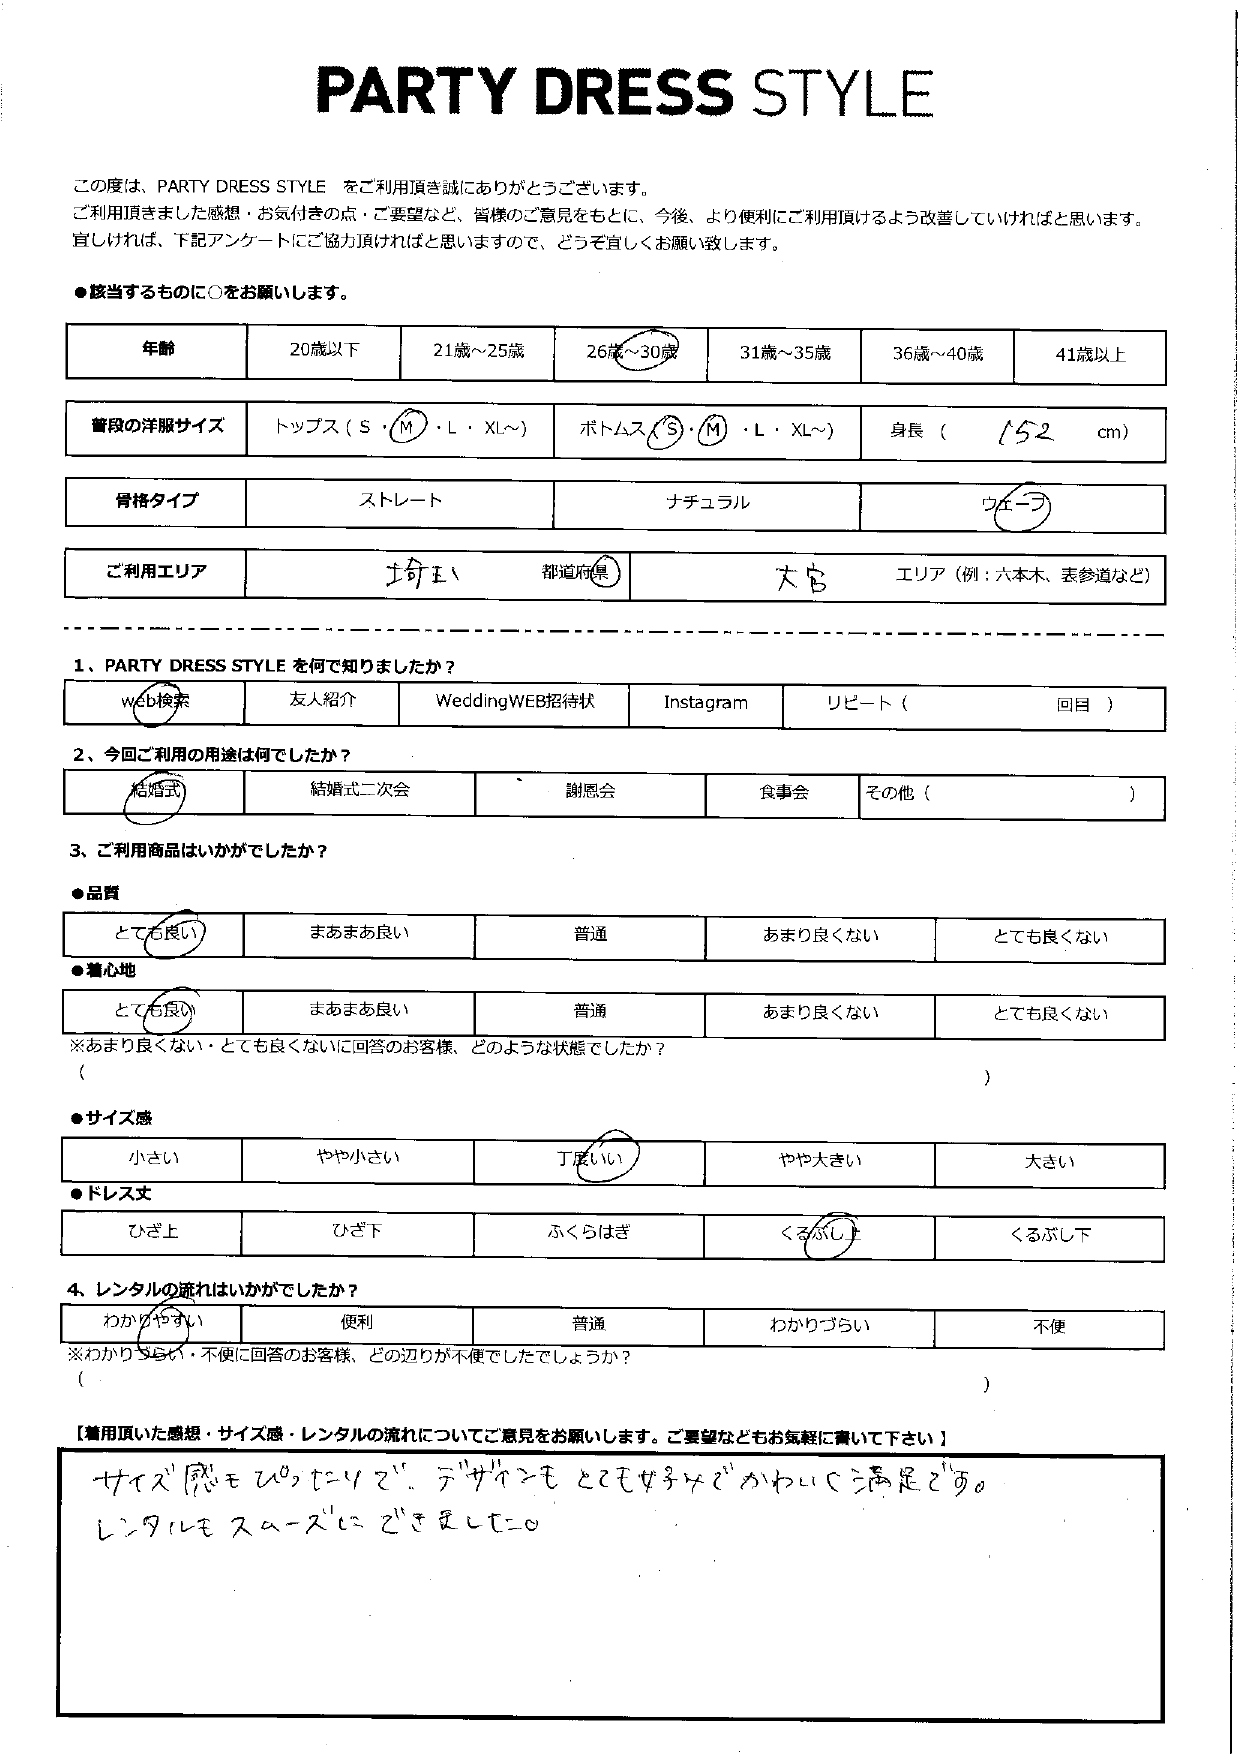 PARTY DRESS STYLE
この度は、PARTY DRESS STYLE をご利用頂き誠にありがとうございます。
ご利用頂きました感想・お気付きの点・ご要望など、皆様のご意見をもとに、今後、より便利にご利用頂けるよう改善していければと思います。
宜しければ、下記アンケートにご協力頂ければと思いますので、どうぞ宜しくお願い致します。
●該当するものに○をお願いします。
年齢 20歳以下 21歳～25歳 26歳～30歳 31歳～35歳 36歳～40歳 41歳以上
普段の洋服サイズ トップス ( S ・ M ・ L ・ XL～) ボトムス ( S ・ M ・ L ・ XL～) 身長 ( 152 cm)
骨格タイプ ストレート ナチュラル ウェーブ
ご利用エリア 埼玉 都道府県 大宮 エリア（例：六本木、表参道など）
1、PARTY DRESS STYLE を何で知りましたか？
web検索 友人紹介 WeddingWEB招待状 Instagram リピート ( 回目 )
2、今回ご利用の用途は何でしたか？
結婚式 結婚式二次会 謝恩会 食事会 その他 ( )
3、ご利用商品はいかがでしたか？
●品質
とても良い まあまあ良い 普通 あまり良くない とても良くない
●着心地
とても良い まあまあ良い 普通 あまり良くない とても良くない
※あまり良くない・とても良くないに回答のお客様、どのような状態でしたか？
( )
●サイズ感
小さい やや小さい 丁度いい やや大きい 大きい
●ドレス丈
ひざ上 ひざ下 ふくらはぎ くるぶし上 くるぶし下
4、レンタルの流れはいかがでしたか？
わかりやすい 便利 普通 わかりづらい 不便
※わかりづらい・不便に回答のお客様、どの辺りが不便でしたでしょうか？
( )
【着用頂いた感想・サイズ感・レンタルの流れについてご意見をお願いします。ご要望などもお気軽に書いて下さい】
サイズ感もぴったりで、デザインもとても好みでかわいく満足です。
レンタルもスムーズにできました。